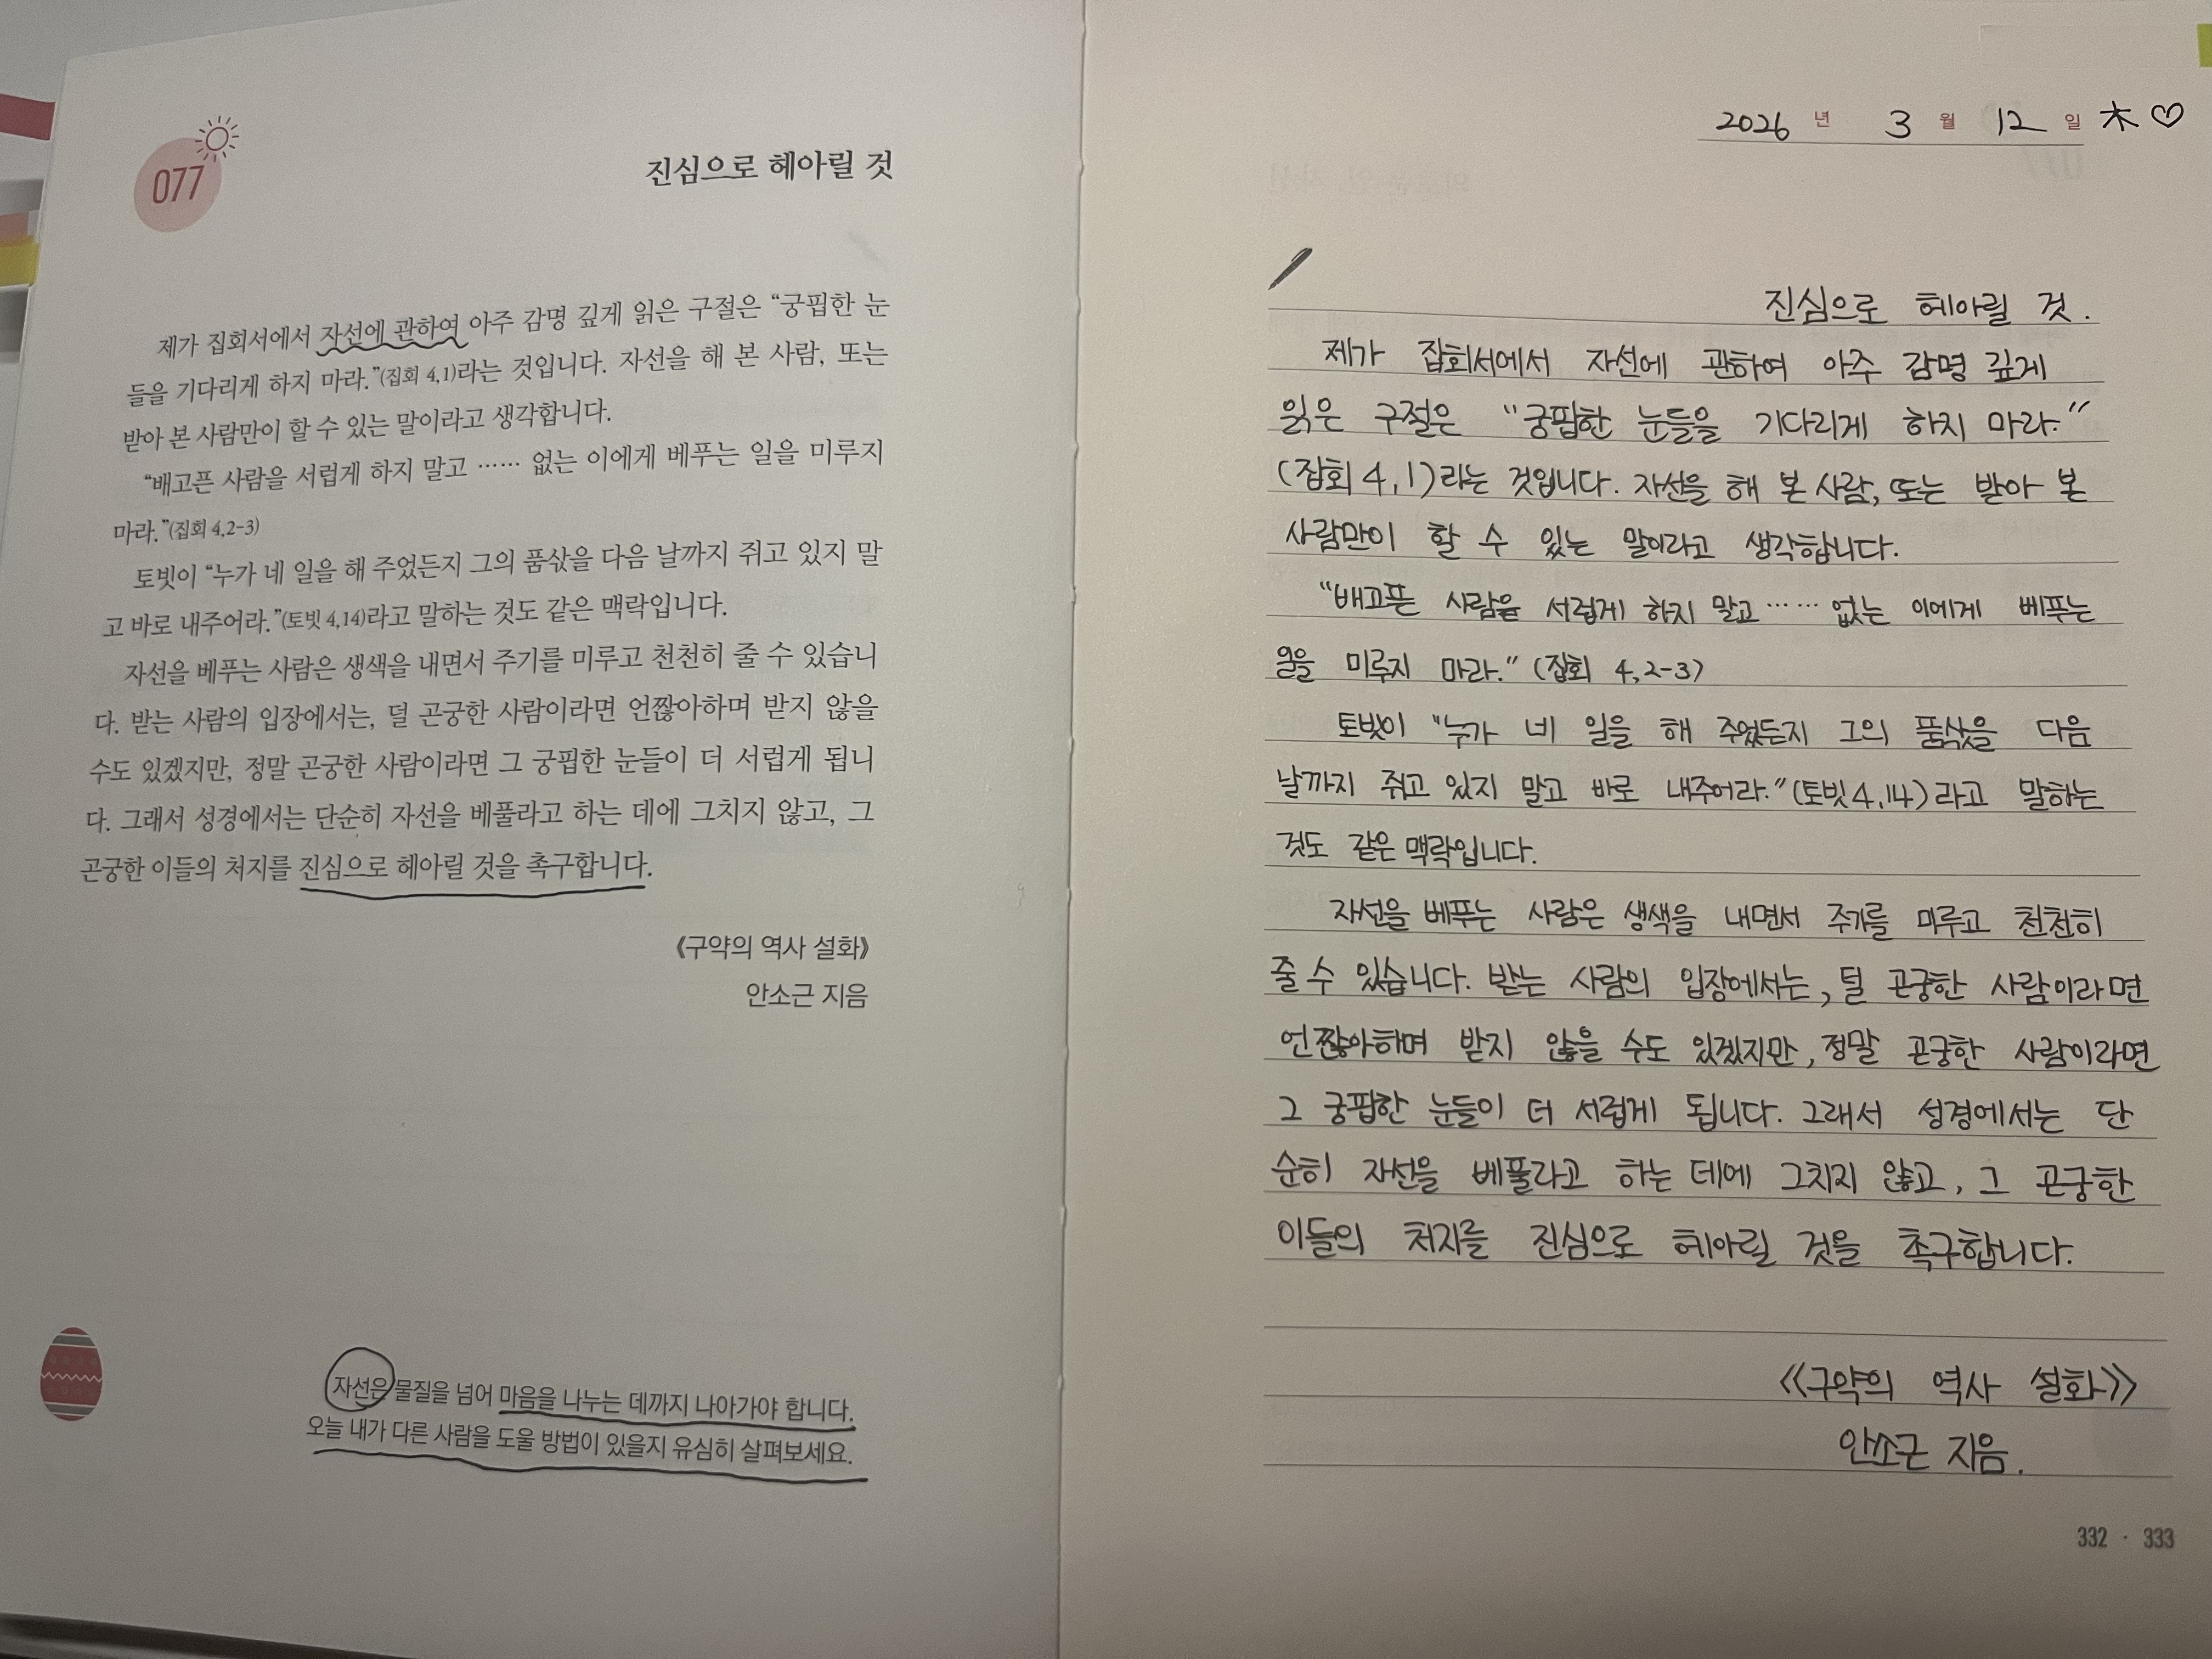 077
진심으로 헤아릴 것
제가 집회서에서 자선에 관하여 아주 감명 깊게 읽은 구절은 “궁핍한 눈
들을 기다리게 하지 마라.”(집회 4,1)라는 것입니다. 자선을 해 본 사람, 또는
받아 본 사람만이 할 수 있는 말이라고 생각합니다.
“배고픈 사람을 서럽게 하지 말고 …… 없는 이에게 베푸는 일을 미루지
마라.”(집회 4,2-3)
토빗이 “누가 네 일을 해 주었든지 그의 품삯을 다음 날까지 쥐고 있지 말
고 바로 내주어라.”(토빗 4,14)라고 말하는 것도 같은 맥락입니다.
자선을 베푸는 사람은 생색을 내면서 주기를 미루고 천천히 줄 수 있습니
다. 받는 사람의 입장에서는, 덜 곤궁한 사람이라면 언짢아하며 받지 않을
수도 있겠지만, 정말 곤궁한 사람이라면 그 궁핍한 눈들이 더 서럽게 됩니
다. 그래서 성경에서는 단순히 자선을 베풀라고 하는 데에 그치지 않고, 그
곤궁한 이들의 처지를 진심으로 헤아릴 것을 촉구합니다.
《구약의 역사 설화》
안소근 지음
자선은 물질을 넘어 마음을 나누는 데까지 나아가야 합니다.
오늘 내가 다른 사람을 도울 방법이 있을지 유심히 살펴보세요.
2026 년 3 월 12 일 木 ♡
진심으로 헤아릴 것.
제가 집회서에서 자선에 관하여 아주 감명 깊게
읽은 구절은 “궁핍한 눈들을 기다리게 하지 마라.”
(집회 4,1)라는 것입니다. 자선을 해 본 사람, 또는 받아 본
사람만이 할 수 있는 말이라고 생각합니다.
“배고픈 사람을 서럽게 하지 말고 …… 없는 이에게 베푸는
일을 미루지 마라.” (집회 4,2-3)
토빗이 “누가 네 일을 해 주었든지 그의 품삯을 다음
날까지 쥐고 있지 말고 바로 내주어라.”(토빗 4,14)라고 말하는
것도 같은 맥락입니다.
자선을 베푸는 사람은 생색을 내면서 주기를 미루고 천천히
줄 수 있습니다. 받는 사람의 입장에서는, 덜 곤궁한 사람이라면
언짢아하며 받지 않을 수도 있겠지만, 정말 곤궁한 사람이라면
그 궁핍한 눈들이 더 서럽게 됩니다. 그래서 성경에서는 단
순히 자선을 베풀라고 하는 데에 그치지 않고, 그 곤궁한
이들의 처지를 진심으로 헤아릴 것을 촉구합니다.
《구약의 역사 설화》
안소근 지음.
332 · 333